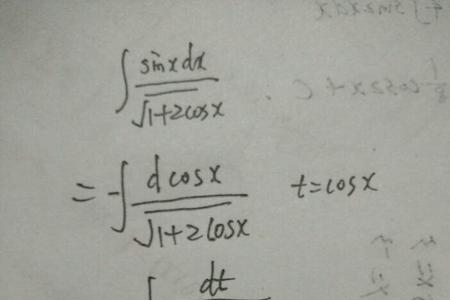 ∫ sinxdx / √1+2cosx
= -∫ dcosx / √1+2cosx t=cosx
∫ dt